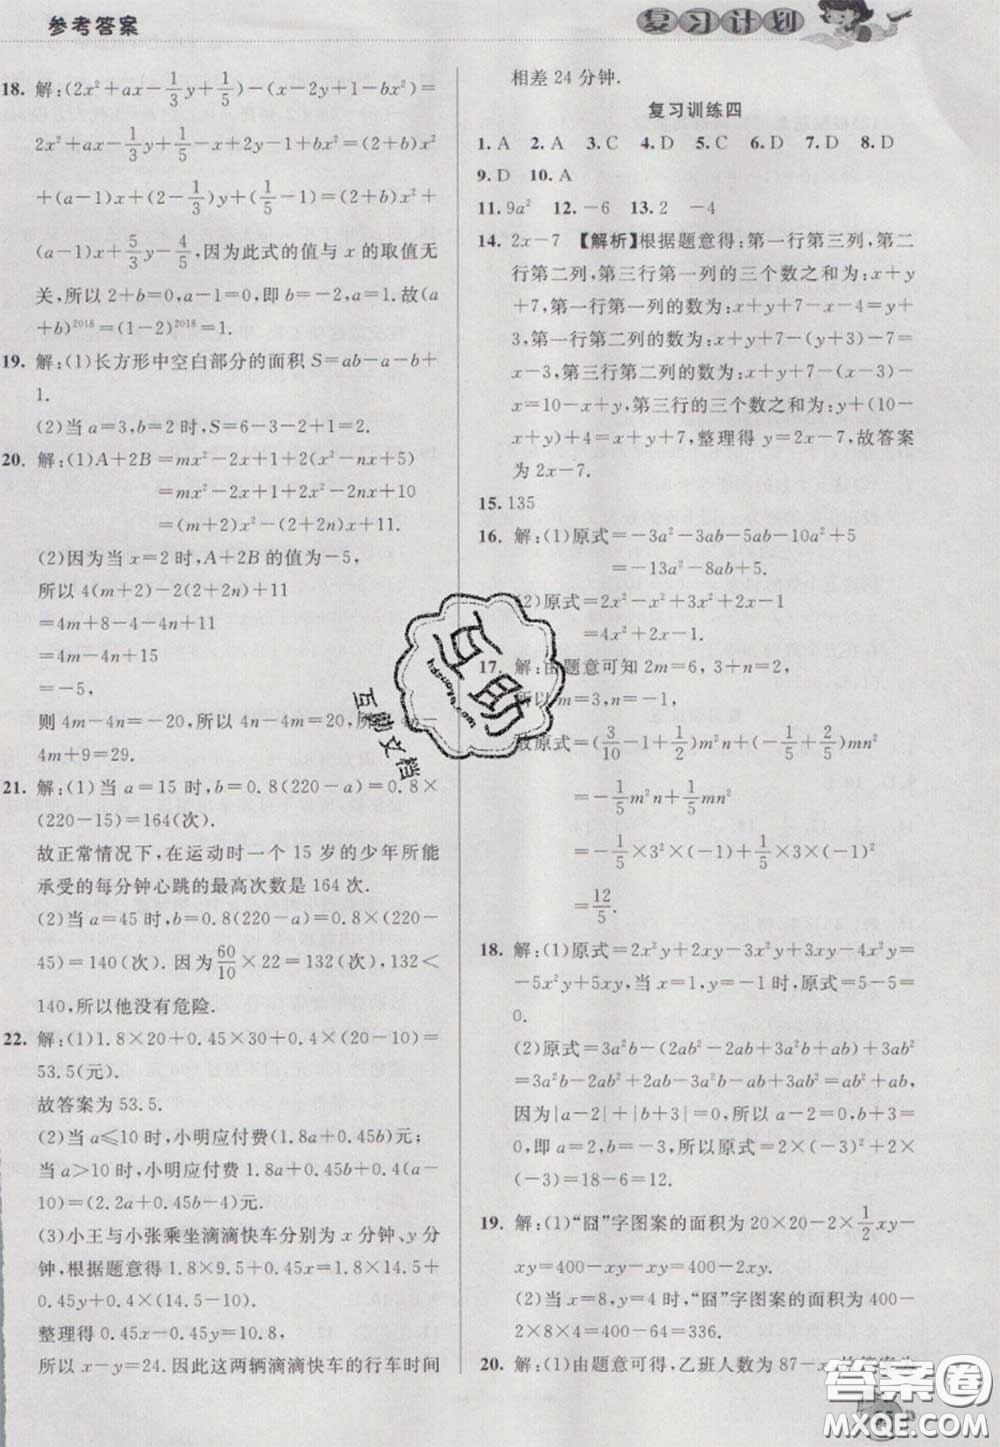 参考答案
复习计划
18. 解:(2x²+ax-1/3y+1/5)-(x-2y+1-bx²)=
2x²+ax-1/3y+1/5-x+2y-1+bx²=(2+b)x²
+(a-1)x+(2-1/3)y+1/5-1=(2+b)x²+
(a-1)x+5/3y-4/5,因为此式的值与 x 的取值无
关,所以 2+b=0,a-1=0,即 b=-2,a=1.故(a
+b)²⁰¹⁸=(1-2)²⁰¹⁸=1.
19. 解:(1)长方形中空白部分的面积 S=ab-a-b+
1.
(2)当 a=3,b=2 时,S=6-3-2+1=2.
20. 解:(1)A+2B=mx²-2x+1+2(x²-nx+5)
=mx²-2x+1+2x²-2nx+10
=(m+2)x²-(2+2n)x+11.
(2)因为当 x=2 时,A+2B 的值为-5,
所以 4(m+2)-2(2+2n)+11
=4m+8-4-4n+11
=4m-4n+15
=-5,
则 4m-4n=-20,所以 4n-4m=20,所以 4n-
4m+9=29.
21. 解:(1)当 a=15 时,b=0.8(220-a)=0.8×
(220-15)=164(次).
故正常情况下,在运动时一个 15 岁的少年所能
承受的每分钟心跳的最高次数是 164 次.
(2)当 a=45 时,b=0.8(220-a)=0.8×(220-
45)=140(次).因为60/10×22=132(次),132<
140,所以他没有危险.
22. 解:(1)1.8×20+0.45×30+0.4×(20-10)=
53.5(元).
故答案为 53.5.
(2)当 a≤10 时,小明应付费(1.8a+0.45b)元;
当 a>10 时,小明应付费 1.8a+0.45b+0.4(a-
10)=(2.2a+0.45b-4)元.
(3)小王与小张乘坐滴滴快车分别为 x 分钟、y 分
钟,根据题意得 1.8×9.5+0.45x=1.8×14.5+
0.45y+0.4×(14.5-10).
整理得 0.45x-0.45y=10.8,
所以 x-y=24.因此这两辆滴滴快车的行车时间
相差 24 分钟.
复习训练四
1. A 2. A 3. C 4. D 5. C 6. D 7. D 8. D
9. D 10. A
11. 9a² 12. -6 13. 2 -4
14. 2x-7 【解析】根据题意得:第一行第三列,第二
行第二列,第三行第一列的三个数之和为:x+y
+7,第一行第一列的数为:x+y+7-x-4=y+
3,第一行第二列的数为:x+y+7-(y+3)-7=
x-3,第三行第二列的数为:x+y+7-(x-3)-
x=10-x,第三行的三个数之和为:y+(10-
x)+4=x+y+7,整理得 y=2x-7,故答案
为 2x-7.
15. 135
16. 解:(1)原式=-3a²-3ab-5ab-10a²+5
=-13a²-8ab+5.
(2)原式=2x²-x²+3x²+2x-1
=4x²+2x-1.
17. 解:由题意可知 2m=6,3+n=2,
所以 m=3,n=-1,
故原式=(3/10-1+1/2)m²n+(-1/5+2/5)mn²
=-1/5m²n+1/5mn²
=-1/5×3²×(-1)+1/5×3×(-1)²
=12/5.
18. 解:(1)原式=2x²y+2xy-3x²y+3xy-4x²y=
-5x²y+5xy,当 x=1,y=-1 时,原式=5-5=
0.
(2)原式=3a²b-(2ab²-2ab+3a²b+3ab)=
3a²b-2ab²+2ab-3a²b-3ab=-2ab²-ab,
因为|a-2|+|b+3|=0,所以 a-2=0,b+3=
0,即 a=2,b=-3,所以原式=-2×(-3)²-2×
(-3)=-18+6=-12.
19. 解:(1)“囧”字图案的面积为 20×20-2×1/2xy-
xy=400-xy-xy=400-2xy.
(2)当 x=8,y=4 时,“囧”字图案的面积为 400-
2×8×4=400-64=336.
20. 解:(1)由题意可得,乙班人数为 87-x,故答案为
互助
互助文档
答案圈
MXQE.COM